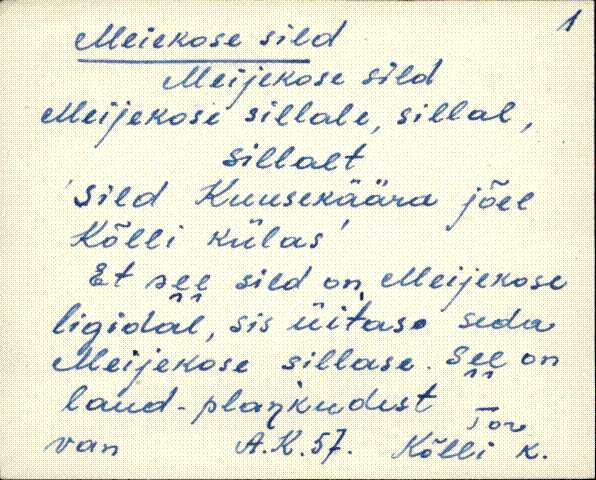 1
Meiekose sild
Meijekose sild
Meijekose sillale, sillal,
sillalt
'Sild Kuusekäära jõel
Kõlli külas'
Et see sild on Meijekose
ligidal, sis üitasse seda
Meijekose sillase. See on
laud-plaŋkudest
Tor
van A.K. 57. Kõlli k.